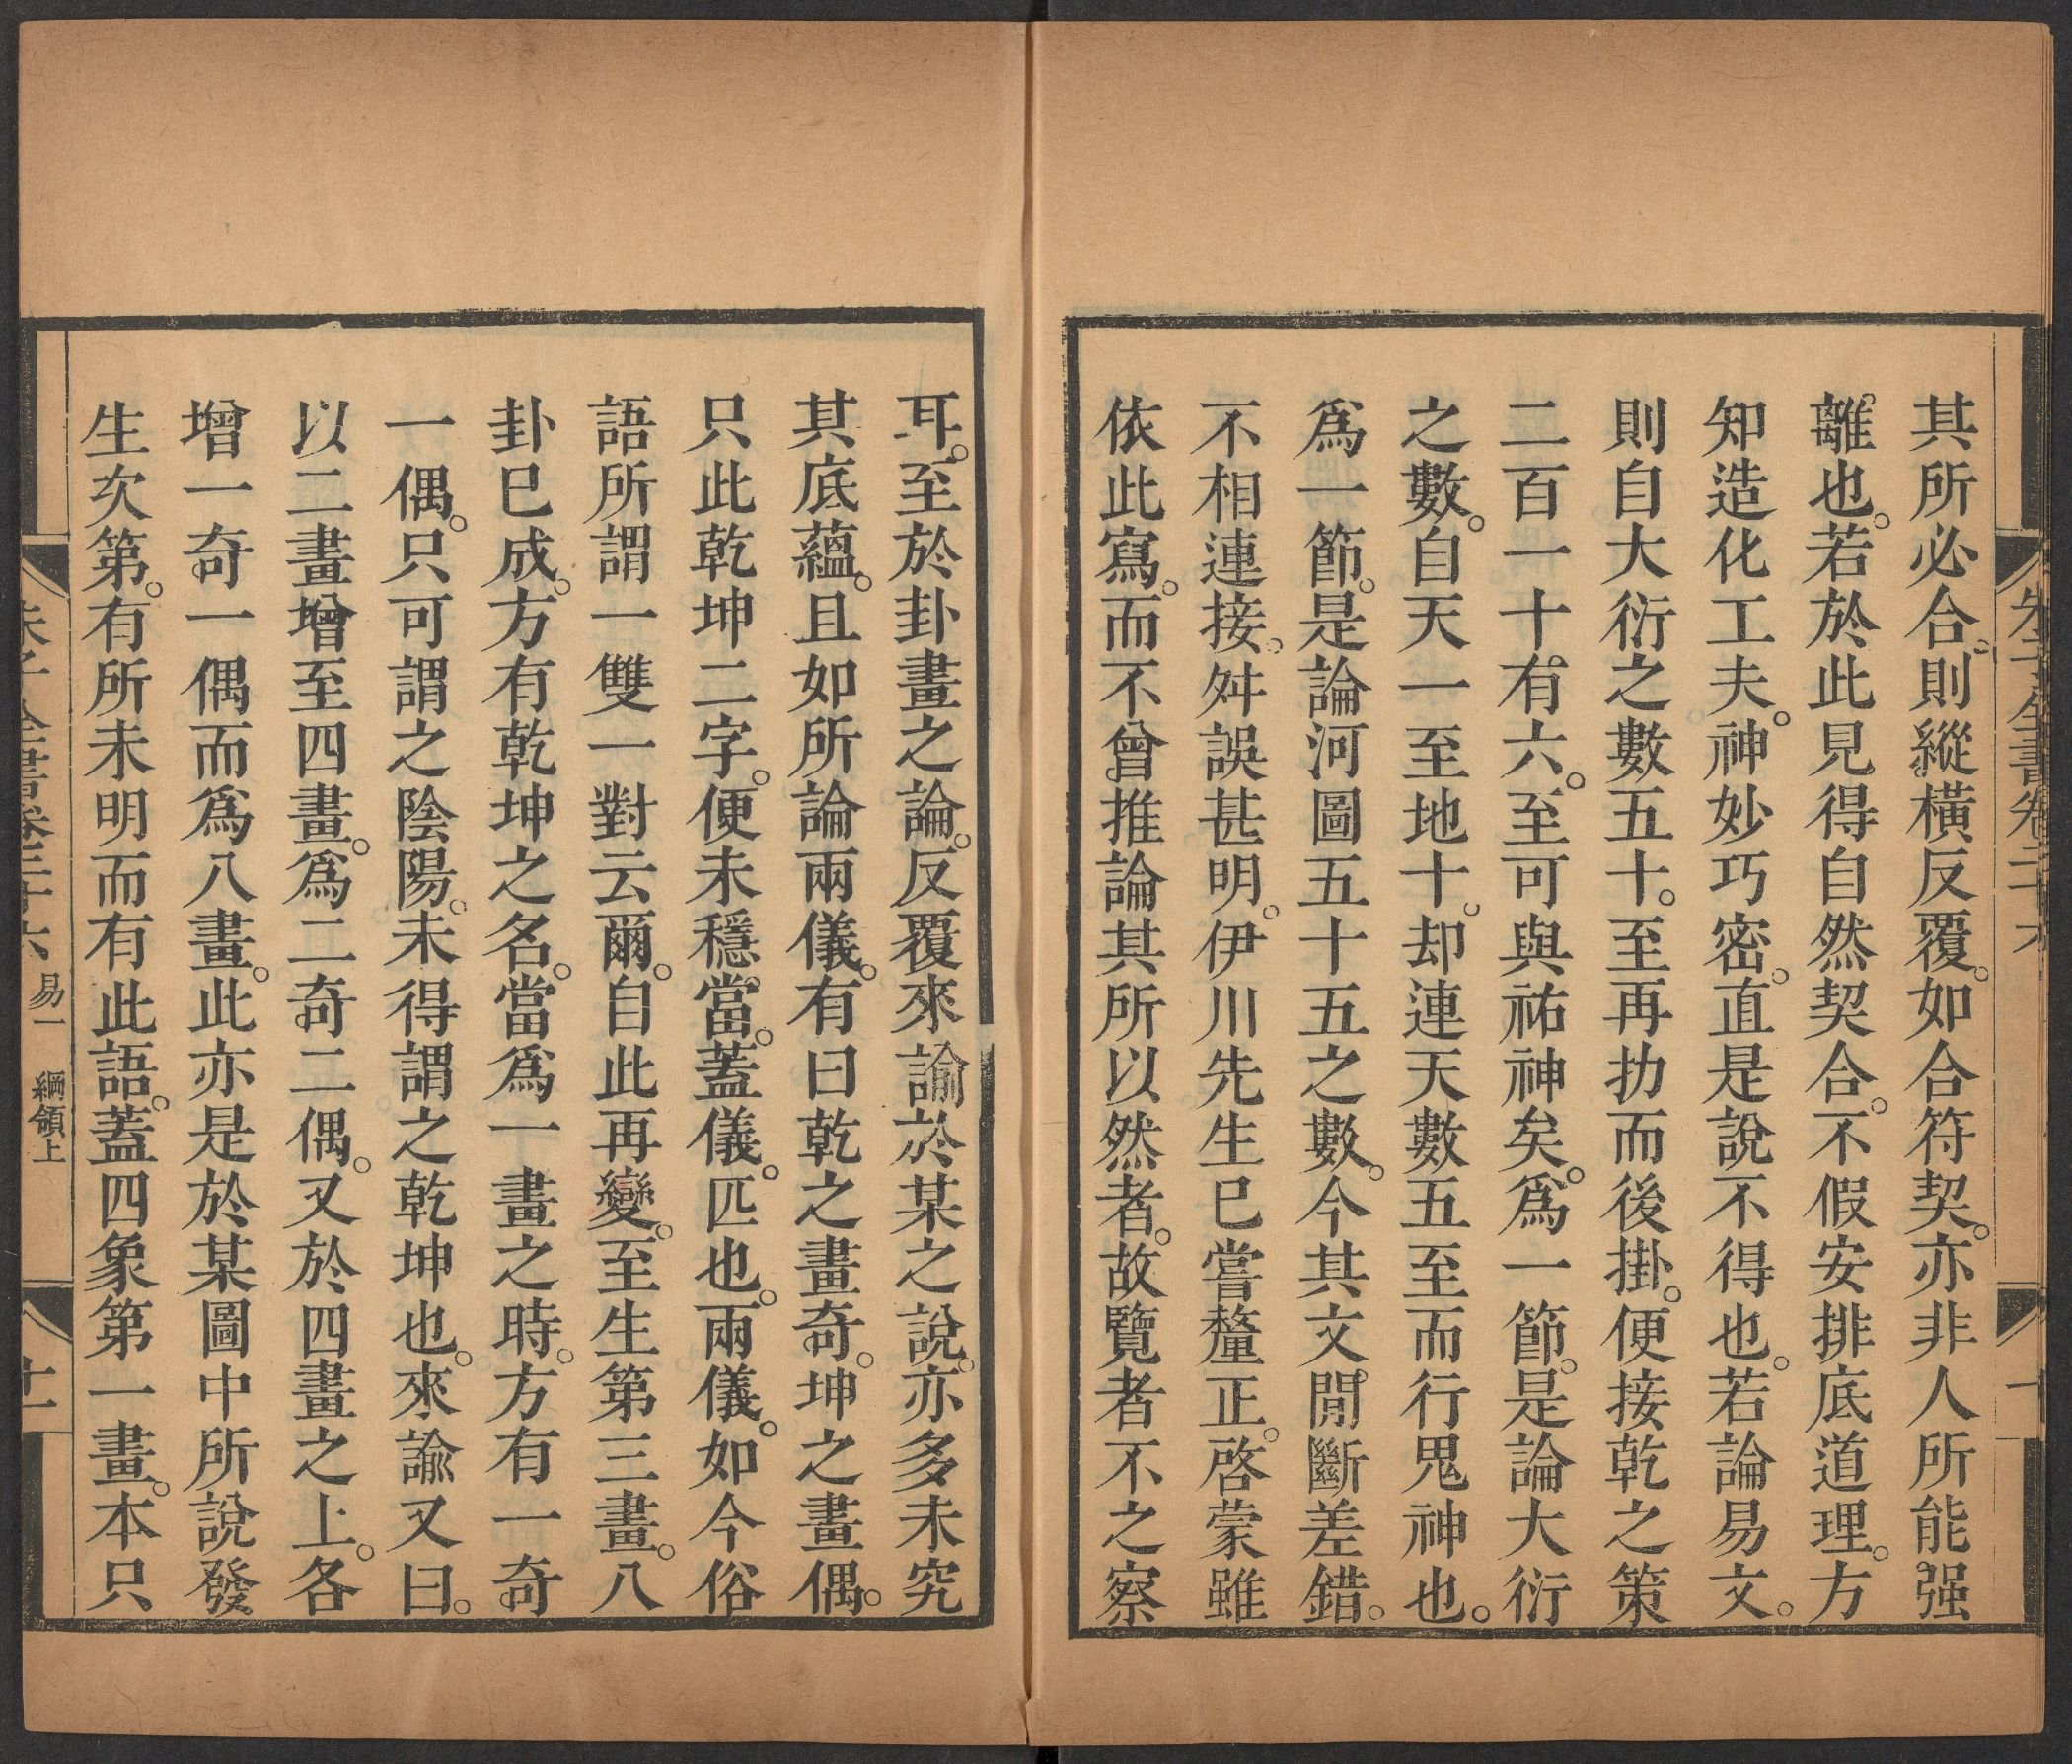 其所必合。則縱橫反覆。如合符契。亦非人所能强
離也。若於此見得自然契合。不假安排底道理。方
知造化工夫。神妙巧密。直是說不得也。若論易文。
則自大衍之數五十。至再扐而後掛。便接乾之策
二百一十有六。至可與祐神矣。爲一節。是論大衍
之數。自天一至地十。却連天數五至而行鬼神也。
爲一節。是論河圖五十五之數。今其文閒斷差錯。
不相連接。舛誤甚明。伊川先生已嘗釐正。啓蒙雖
依此寫。而不曾推論其所以然者。故覽者不之察
耳。至於卦畫之論。反覆來諭。於某之說。亦多未究
其底蘊。且如所論兩儀。有曰乾之畫奇。坤之畫偶。
只此乾坤二字。便未穩當。蓋儀。匹也。兩儀。如今俗
語所謂一雙一對云爾。自此再變。至生第三畫。八
卦已成。方有乾坤之名。當爲一畫之時。方有一奇
一偶。只可謂之陰陽。未得謂之乾坤也。來諭又曰。
以二畫增至四畫。爲二奇二偶。又於四畫之上。各
增一奇一偶而爲八畫。此亦是於某圖中所說發
生次第。有所未明而有此語。蓋四象第一畫。本只
朱子全書卷二十六
易一
綱領上
十一